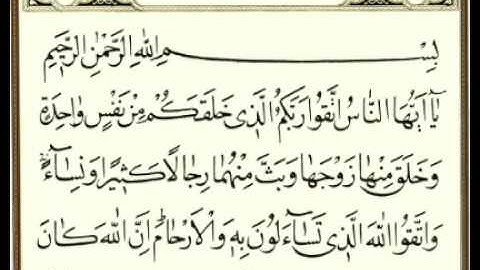 بِسْمِ اللهِ الرَّحْمٰنِ الرَّحِيمِ
يَآ اَيُّهَا النَّاسُ اتَّقُوا رَبَّكُمُ الَّذِى خَلَقَكُمْ مِنْ نَفْسٍ وَاحِدَةٍ
وَخَلَقَ مِنْهَا زَوْجَهَا وَبَثَّ مِنْهُمَا رِجَالًا كَثِيرًا وَنِسَآءً
وَاتَّقُوا اللهَ الَّذِى تَسَآءَلُونَ بِهِ وَالْاَرْحَامَ اِنَّ اللهَ كَانَ